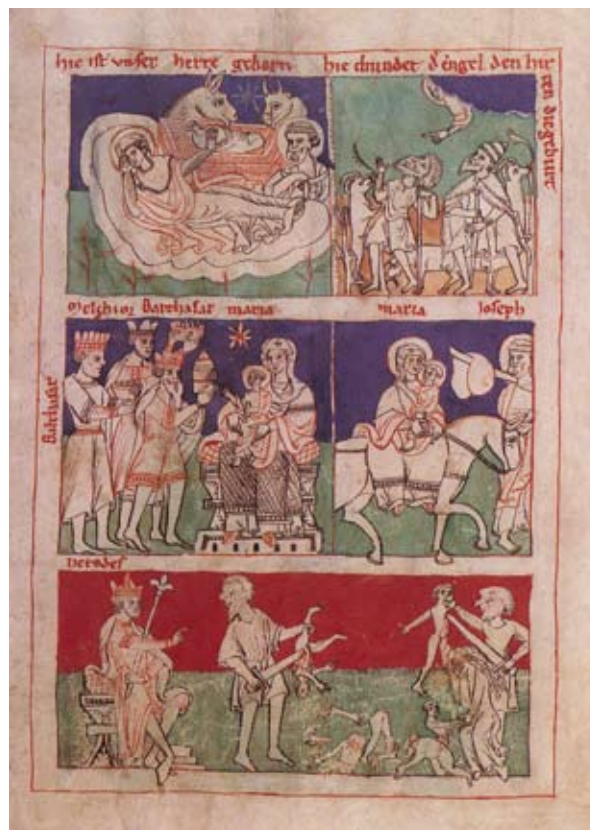 hie ist vnser herre geborn
hie chundet d'engel den hir
ten die geburt
Melchior Balthasar maria
maria Joseph
Balthasar
herodes